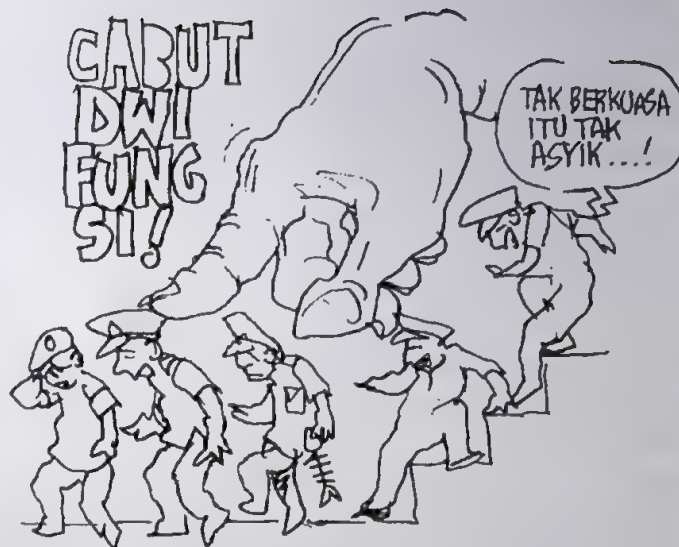 CABUT
DWI
FUNG
SI!
TAK BERKUASA
ITU TAK
ASYIK....!